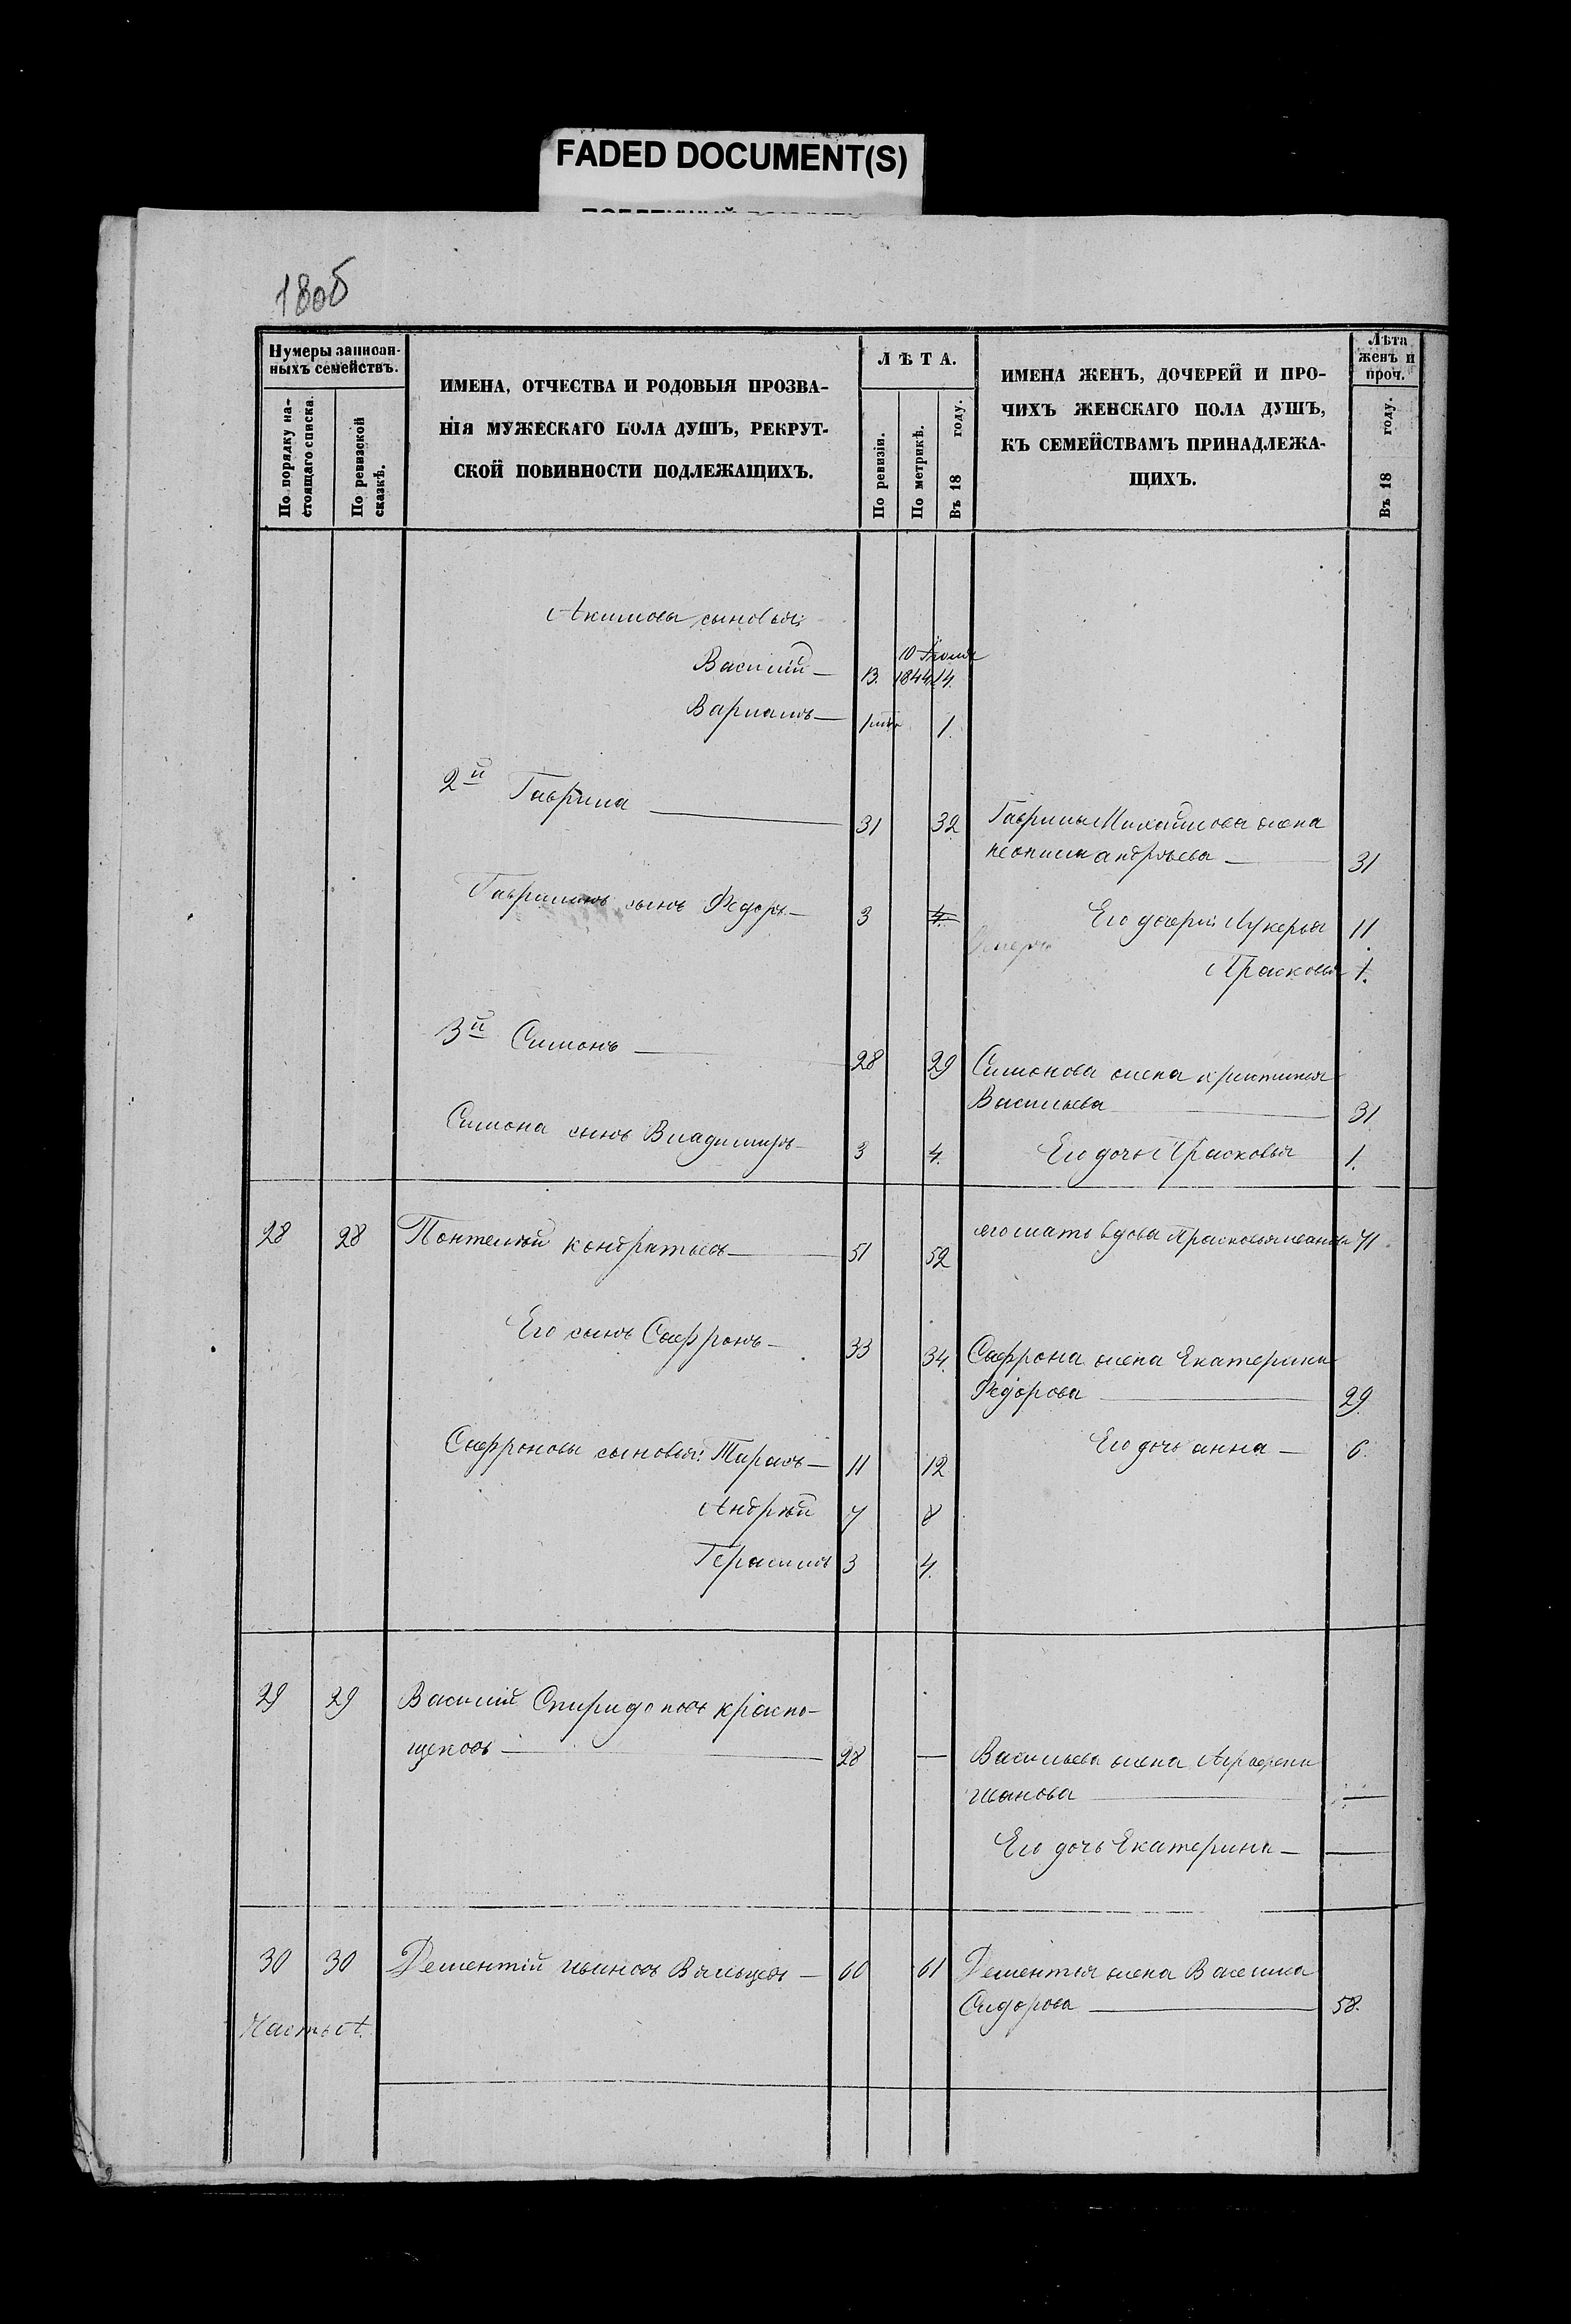 FADED DOCUMENT(S)
180б
Нумеры записан-
ныхъ семействъ.
По порядку на-
стоящаго списка.
По ревизской
сказкѣ.
ИМЕНА, ОТЧЕСТВА И РОДОВЫЯ ПРОЗВА-
НІЯ МУЖЕСКАГО ПОЛА ДУШЪ, РЕКРУТ-
СКОЙ ПОВИННОСТИ ПОДЛЕЖАЩИХЪ.
ЛѢТА.
По ревизіи.
По метрикѣ.
Въ 18 году.
ИМЕНА ЖЕНЪ, ДОЧЕРЕЙ И ПРО-
ЧИХЪ ЖЕНСКАГО ПОЛА ДУШЪ,
КЪ СЕМЕЙСТВАМЪ ПРИНАДЛЕЖА-
ЩИХЪ.
Лѣта
женъ и
проч.
Въ 18 году.
Акимовы сыновья:
10 Іюля
Василій — 13. 1844 14.
Варламъ — 1 1.
2й Гаврила — 31 32 Гаврилы Михайлова жена
андрѣева — 31
Гавриловъ сынъ Федоръ — 3 4. Его дочери Лукерья 11
Прасковья 1.
3й Симонъ — 28 29 Симонова жена
Васильева — 31
Симона сынъ Владимиръ — 3 4. Его дочь Прасковья 1.
28 28 Понтелѣй кондратьевъ — 51 52 его мать вдова Прасковья иванова 71
Его сынъ Сафронъ — 33 34. Сафрона жена Екатерина
Федорова — 29.
Сафроновы сыновья: Тарасъ — 11 12 Его дочь анна — 6.
Андрѣй 7 8
Герасимъ 3 4.
29 29 Василій Спиридоновъ красно-
щековъ — 28 — Васильева жена Аграфена
иванова —
Его дочь Екатерина — —
30 30 Дементій ивановъ Вяльцевъ — 60 61 Дементья жена Василиса
Сидорова — 58.